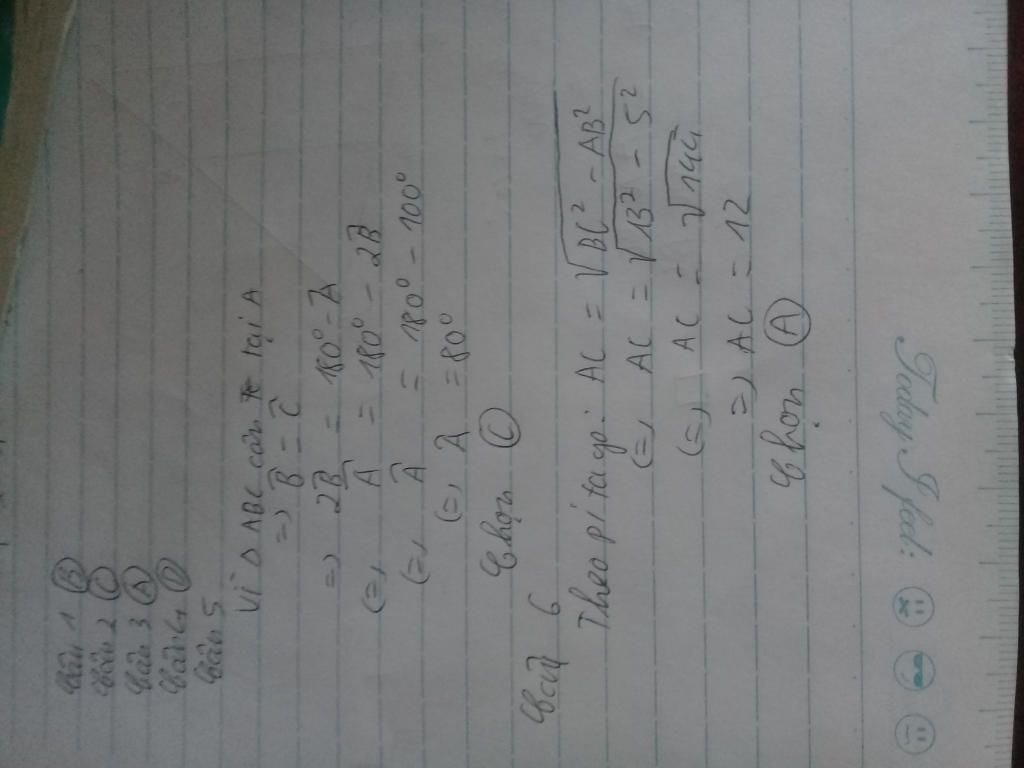 Câu 1 (B)
Câu 2 (C)
Câu 3 (A)
Câu 4 (D)
Câu 5
Vì Δ ABC cân tại A
=> B̂ = Ĉ
=> 2B̂ = 180° - Â
(=) Â = 180° - 2B̂
(=) Â = 180° - 100°
(=) Â = 80°
Chọn (C)
Câu 6
Theo pitago: AC = √BC² - AB²
(=) AC = √13² - 5²
(=) AC = √144
=> AC = 12
Chọn (A)
Today I feel: